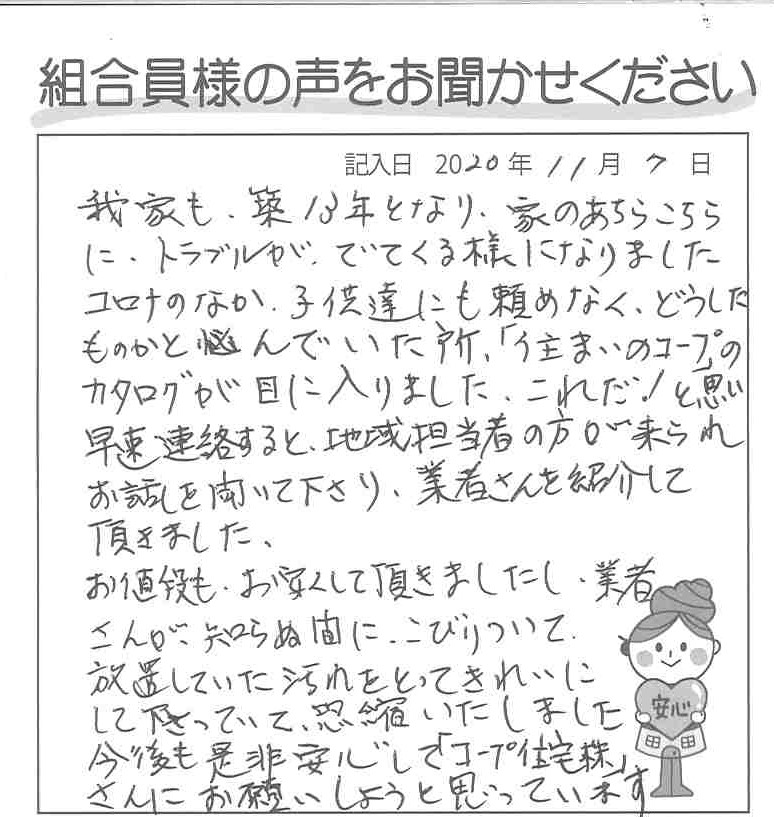 組合員様の声をお聞かせください
記入日 2020年 11月 7日
我家も、築13年となり、家のあちらこちら
に、トラブルが、でてくる様になりました
コロナのなか、子供達にも頼めなく、どうした
ものかと悩んでいた所、「住まいのコープ」の
カタログが目に入りました、これだ!と思い
早速連絡すると、地域担当者の方が来られ
お話しを聞いて下さり、業者さんを紹介して
頂きました、
お値段も、お安くして頂きましたし、業者
さんが、知らぬ間に、こびりついて
放置していた汚れをとってきれいに
して下さっていて、恐縮いたしました
今後も是非安心して「コープ住宅株」
さんにお願いしようと思っています
安心